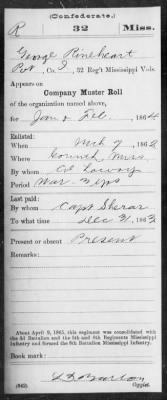 (Confederate.)
R 32 Miss.
George Rineheart
Pvt, Co. I, 32 Reg't Mississippi Vols.
Appears on
Company Muster Roll
of the organization named above,
for Jan & Feb, 1864
Enlisted:
When Mch 7, 1862
Where Corinth Miss
By whom Col Lowry
Period War
Last paid:
By whom Capt
To what time Dec 31, 1863
Present or absent Present
Remarks:
About April 9, 1865, this regiment was consolidated with
the 3d Battalion and the 5th and 8th Regiments Mississippi
Infantry and formed the 8th Battalion Mississippi Infantry.
Book mark:
(642) Copyist.